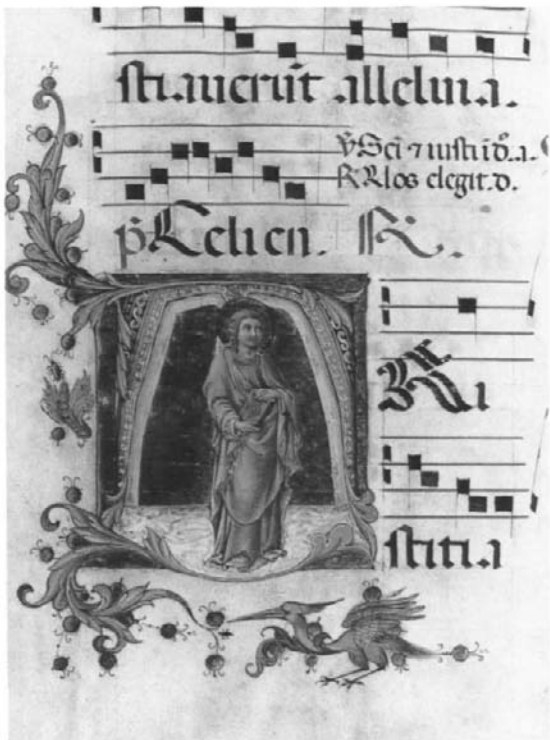 stauerūt alleluia.
℣ Sci ⁊ iusti ī dō. a.
℟ Uos elegit. d.
Celi en. ℟.
RI
stitia